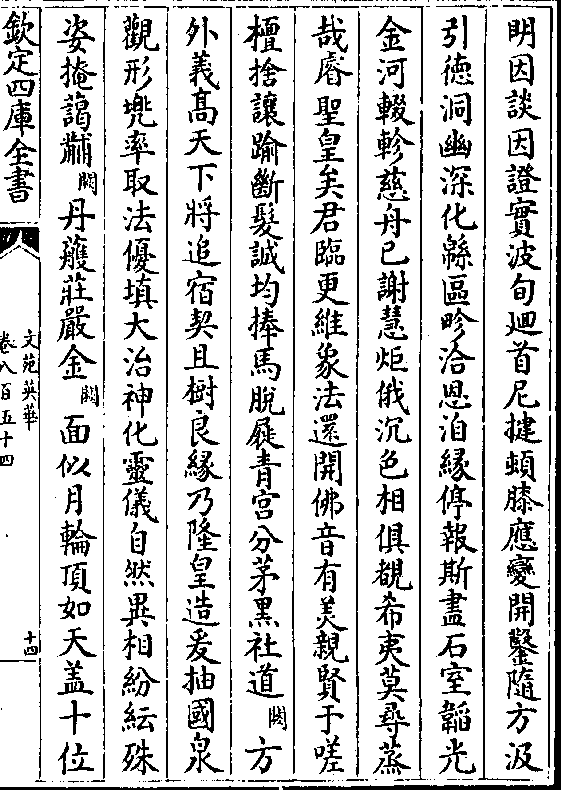 明因談因證實波旬廻首尼揵頓膝應變開鑿隨方汲
引徳洞幽深化緜區畛洽恩洎縁停報斯盡石室韜光
金河輟軫慈舟已謝慧炬俄沉色相俱覩希夷莫尋蒸
哉睿聖皇矣君臨更維象法還開佛音有美親賢于嗟
檀捨讓踰斷髮誠均捧馬脫屣青宮分茅黒社道闕方
外義髙天下將追宿契且樹良縁乃隆皇造爰抽國泉
觀形兠率取法優填大治神化靈儀自然異相紛紜殊
姿掩藹黼闕丹雘莊嚴金闕面似月輪頂如天盖十位
欽定四庫全書
文苑英華
卷八百五十四
十四